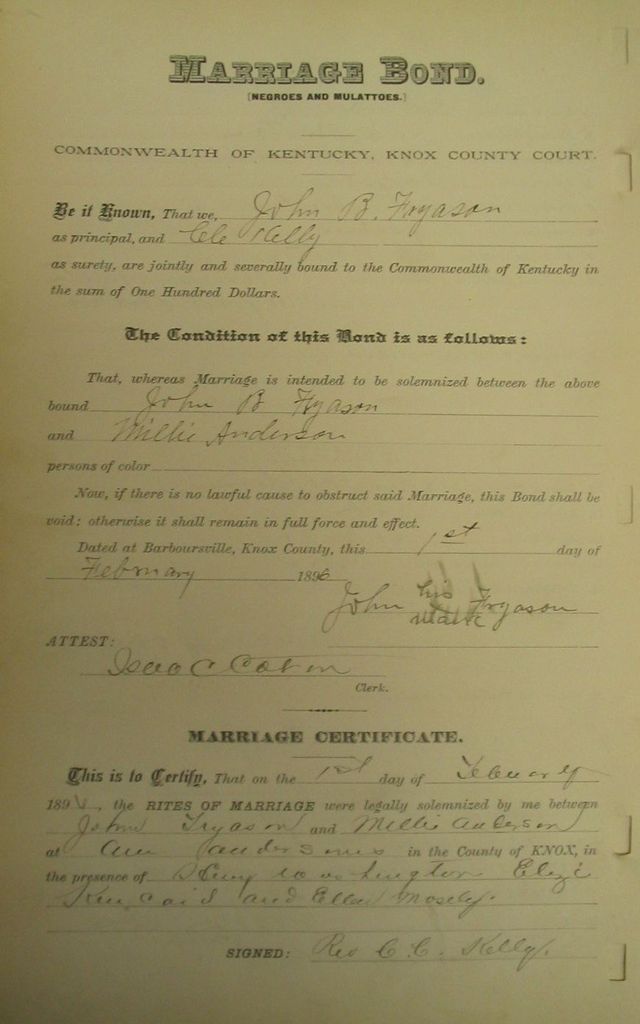 MARRIAGE BOND.
[NEGROES AND MULATTOES.]
COMMONWEALTH OF KENTUCKY, KNOX COUNTY COURT.
Be it Known, That we, John B. Fryason
as principal, and Cle Kelly
as surety, are jointly and severally bound to the Commonwealth of Kentucky in
the sum of One Hundred Dollars.
The Condition of this Bond is as follows:
That, whereas Marriage is intended to be solemnized between the above
bound John B Fryason
and Millie Anderson
persons of color
Now, if there is no lawful cause to obstruct said Marriage, this Bond shall be
void; otherwise it shall remain in full force and effect.
Dated at Barboursville, Knox County, this 1st day of
February 1896
John his mark Fryason
ATTEST:
Isaac C
Clerk.
MARRIAGE CERTIFICATE.
This is to Certify, That on the 1st day of Februarly
189 , the RITES OF MARRIAGE were legally solemnized by me between
John Fryason and Millie Anderson
at Ann andersons in the County of KNOX, in
the presence of washington
Kincaid and Ellen Mosely.
SIGNED: Rev C. C. Kelly.